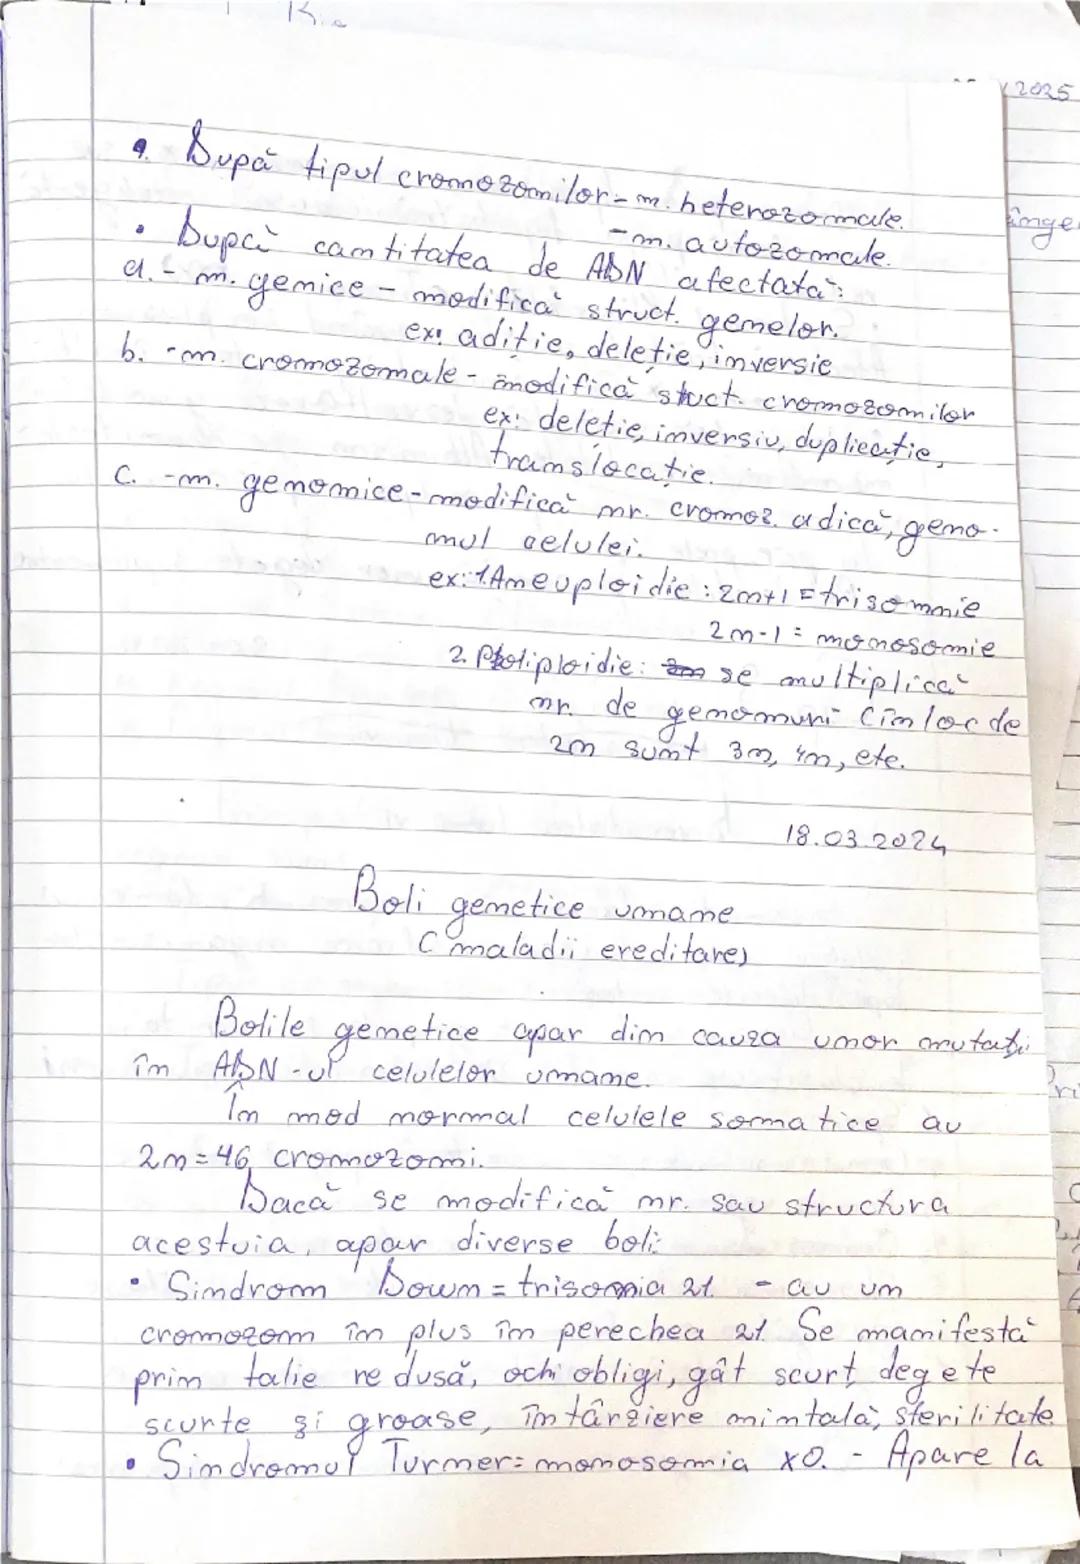 2025
• După tipul cromozomilor - m. heterozomale.
- m. autozomale.
• După cantitatea de ADN afectată:
a. - m. genice - modifică struct. genelor.
ex: adiție, deleție, inversie
b. - m. cromozomale - modifică stuct. cromozomilor
ex: deleție, inversiu, duplicație,
translocație.
c. - m. genomice - modifică nr. cromoz. adică, geno-
mul celulei.
ex: 1. Aneuploidie : 2n+1 = trisomnie
2n-1 = monosomie
2. Poliploidie: se multiplică
nr. de genomuri (în loc de
2n sunt 3n, 4n, etc.
18.03.2024
Boli genetice umane
(maladii ereditare)
Bolile genetice apar din cauza unor mutații
în ADN-ul celulelor umane.
În mod normal celulele somatice au
2n = 46 cromozomi.
Dacă se modifică nr. sau structura
acestuia, apar diverse boli:
• Sindrom Down = trisomia 21. - au un
cromozom în plus în perechea 21. Se manifestă
prin talie redusă, ochi obligi, gât scurt, degete
scurte și groase, întârziere mintală, sterilitate
• Sindromul Turner = monosomia xO. - Apare la